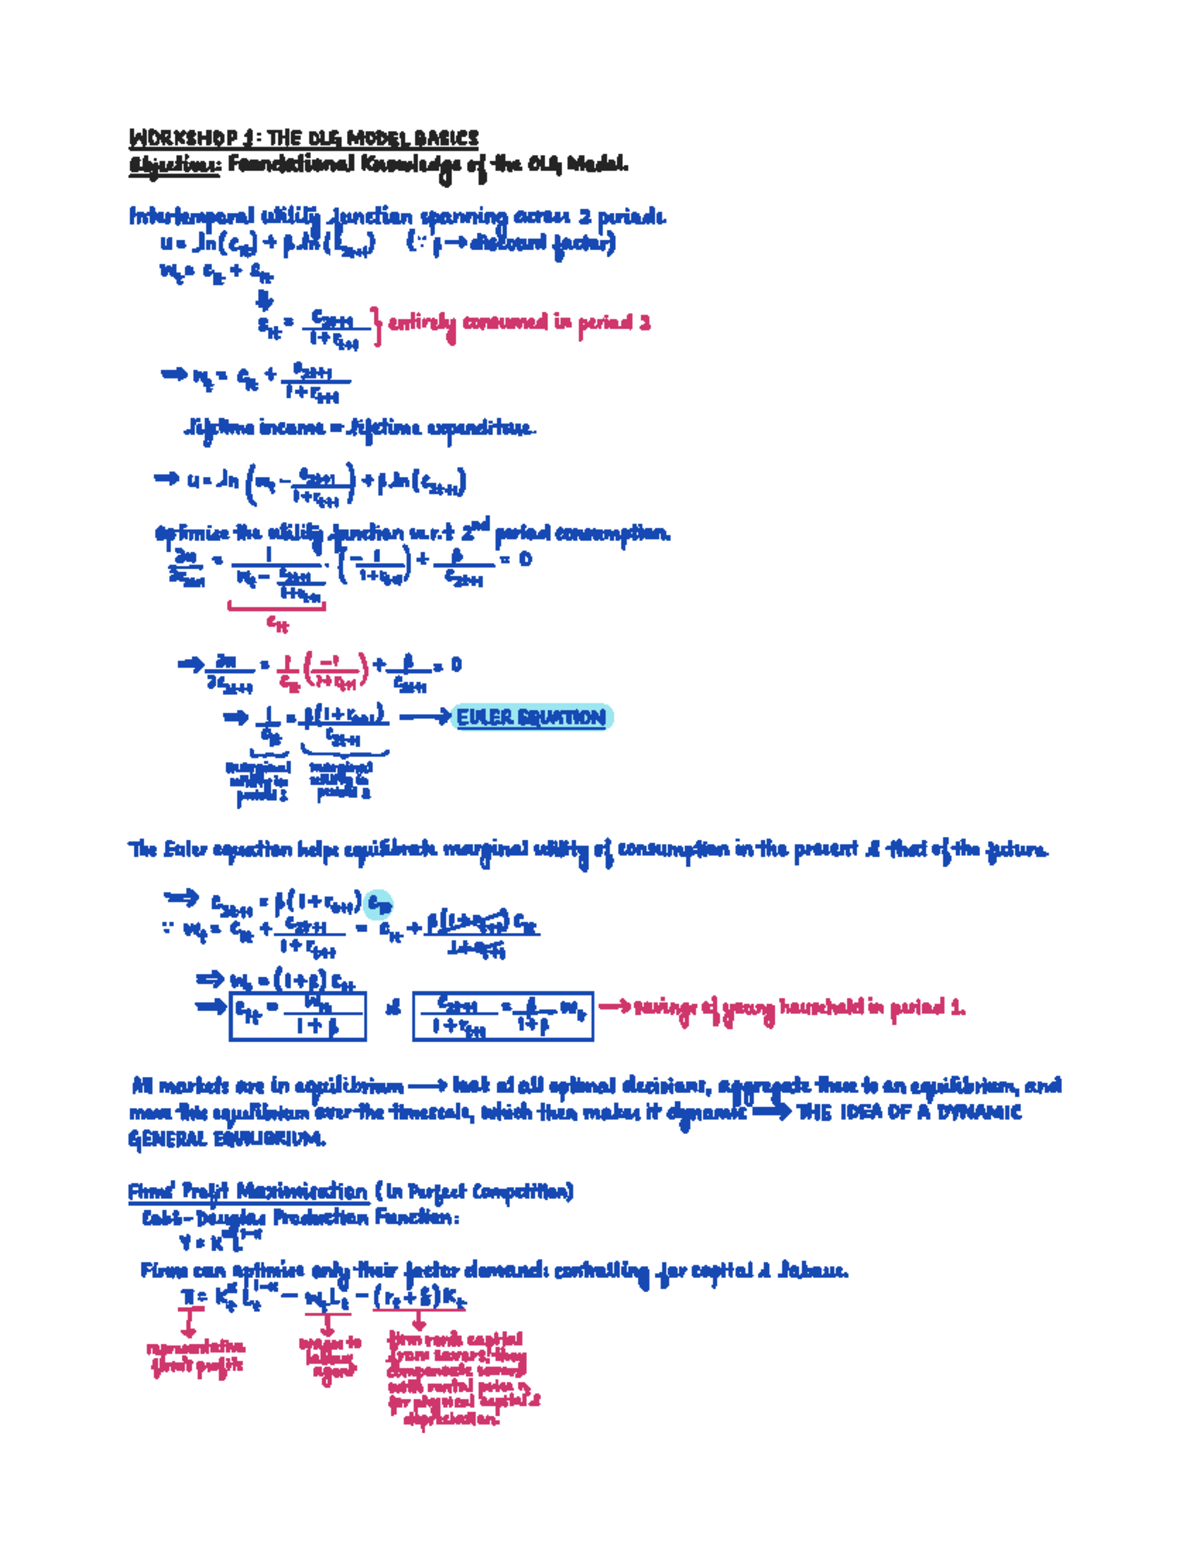 WORKSHOP 1: THE OLG MODEL BASICS
Objectives: Foundational Knowledge of the OLG Model.
Intertemporal utility function spanning across 2 periods.
u = ln(c₁ₜ) + β ln(c₂ₜ₊₁) (∵ β → discount factor)
wₜ = c₁ₜ + s₁ₜ
s₁ₜ = c₂ₜ₊₁ / (1 + rₜ₊₁) } entirely consumed in period 2
⇒ wₜ = c₁ₜ + c₂ₜ₊₁ / (1 + rₜ₊₁)
lifetime income = lifetime expenditure.
⇒ u = ln(wₜ − c₂ₜ₊₁ / (1 + rₜ₊₁)) + β ln(c₂ₜ₊₁)
optimise the utility function w.r.t 2nd period consumption.
∂u/∂c₂ₜ₊₁ = 1 / (wₜ − c₂ₜ₊₁ / (1 + rₜ₊₁)) · (− 1 / (1 + rₜ₊₁)) + β / c₂ₜ₊₁ = 0
c₁ₜ
⇒ ∂u/∂c₂ₜ₊₁ = 1/c₁ₜ (−1 / (1 + rₜ₊₁)) + β / c₂ₜ₊₁ = 0
⇒ 1/c₁ₜ = β(1 + rₜ₊₁) / c₂ₜ₊₁ → EULER EQUATION
marginal utility in period 1 marginal utility in period 2
The Euler equation helps equilibrate marginal utility of consumption in the present & that of the future.
⇒ c₂ₜ₊₁ = β(1 + rₜ₊₁) c₁ₜ
∵ wₜ = c₁ₜ + c₂ₜ₊₁ / (1 + rₜ₊₁) = c₁ₜ + β(1 + rₜ₊₁) c₁ₜ / (1 + rₜ₊₁)
⇒ wₜ = (1 + β) c₁ₜ
⇒ c₁ₜ = wₜ / (1 + β) & c₂ₜ₊₁ / (1 + rₜ₊₁) = β / (1 + β) wₜ → savings of young household in period 1.
All markets are in equilibrium → look at all optimal decisions, aggregate these to an equilibrium, and
move this equilibrium over the timescale, which then makes it dynamic → THE IDEA OF A DYNAMIC
GENERAL EQUILIBRIUM.
Firms' Profit Maximisation (In Perfect Competition)
Cobb-Douglas Production Function:
Y = K^α L^(1−α)
Firms can optimise only their factor demand: controlling for capital & labour.
π = Kₜ^α Lₜ^(1−α) − wₜLₜ − (rₜ + δ)Kₜ
representative firm's profit
wages to labour agent
firm rents capital
from savers; they
compensate savers
with rental price rₜ
for physical capital &
depreciation.